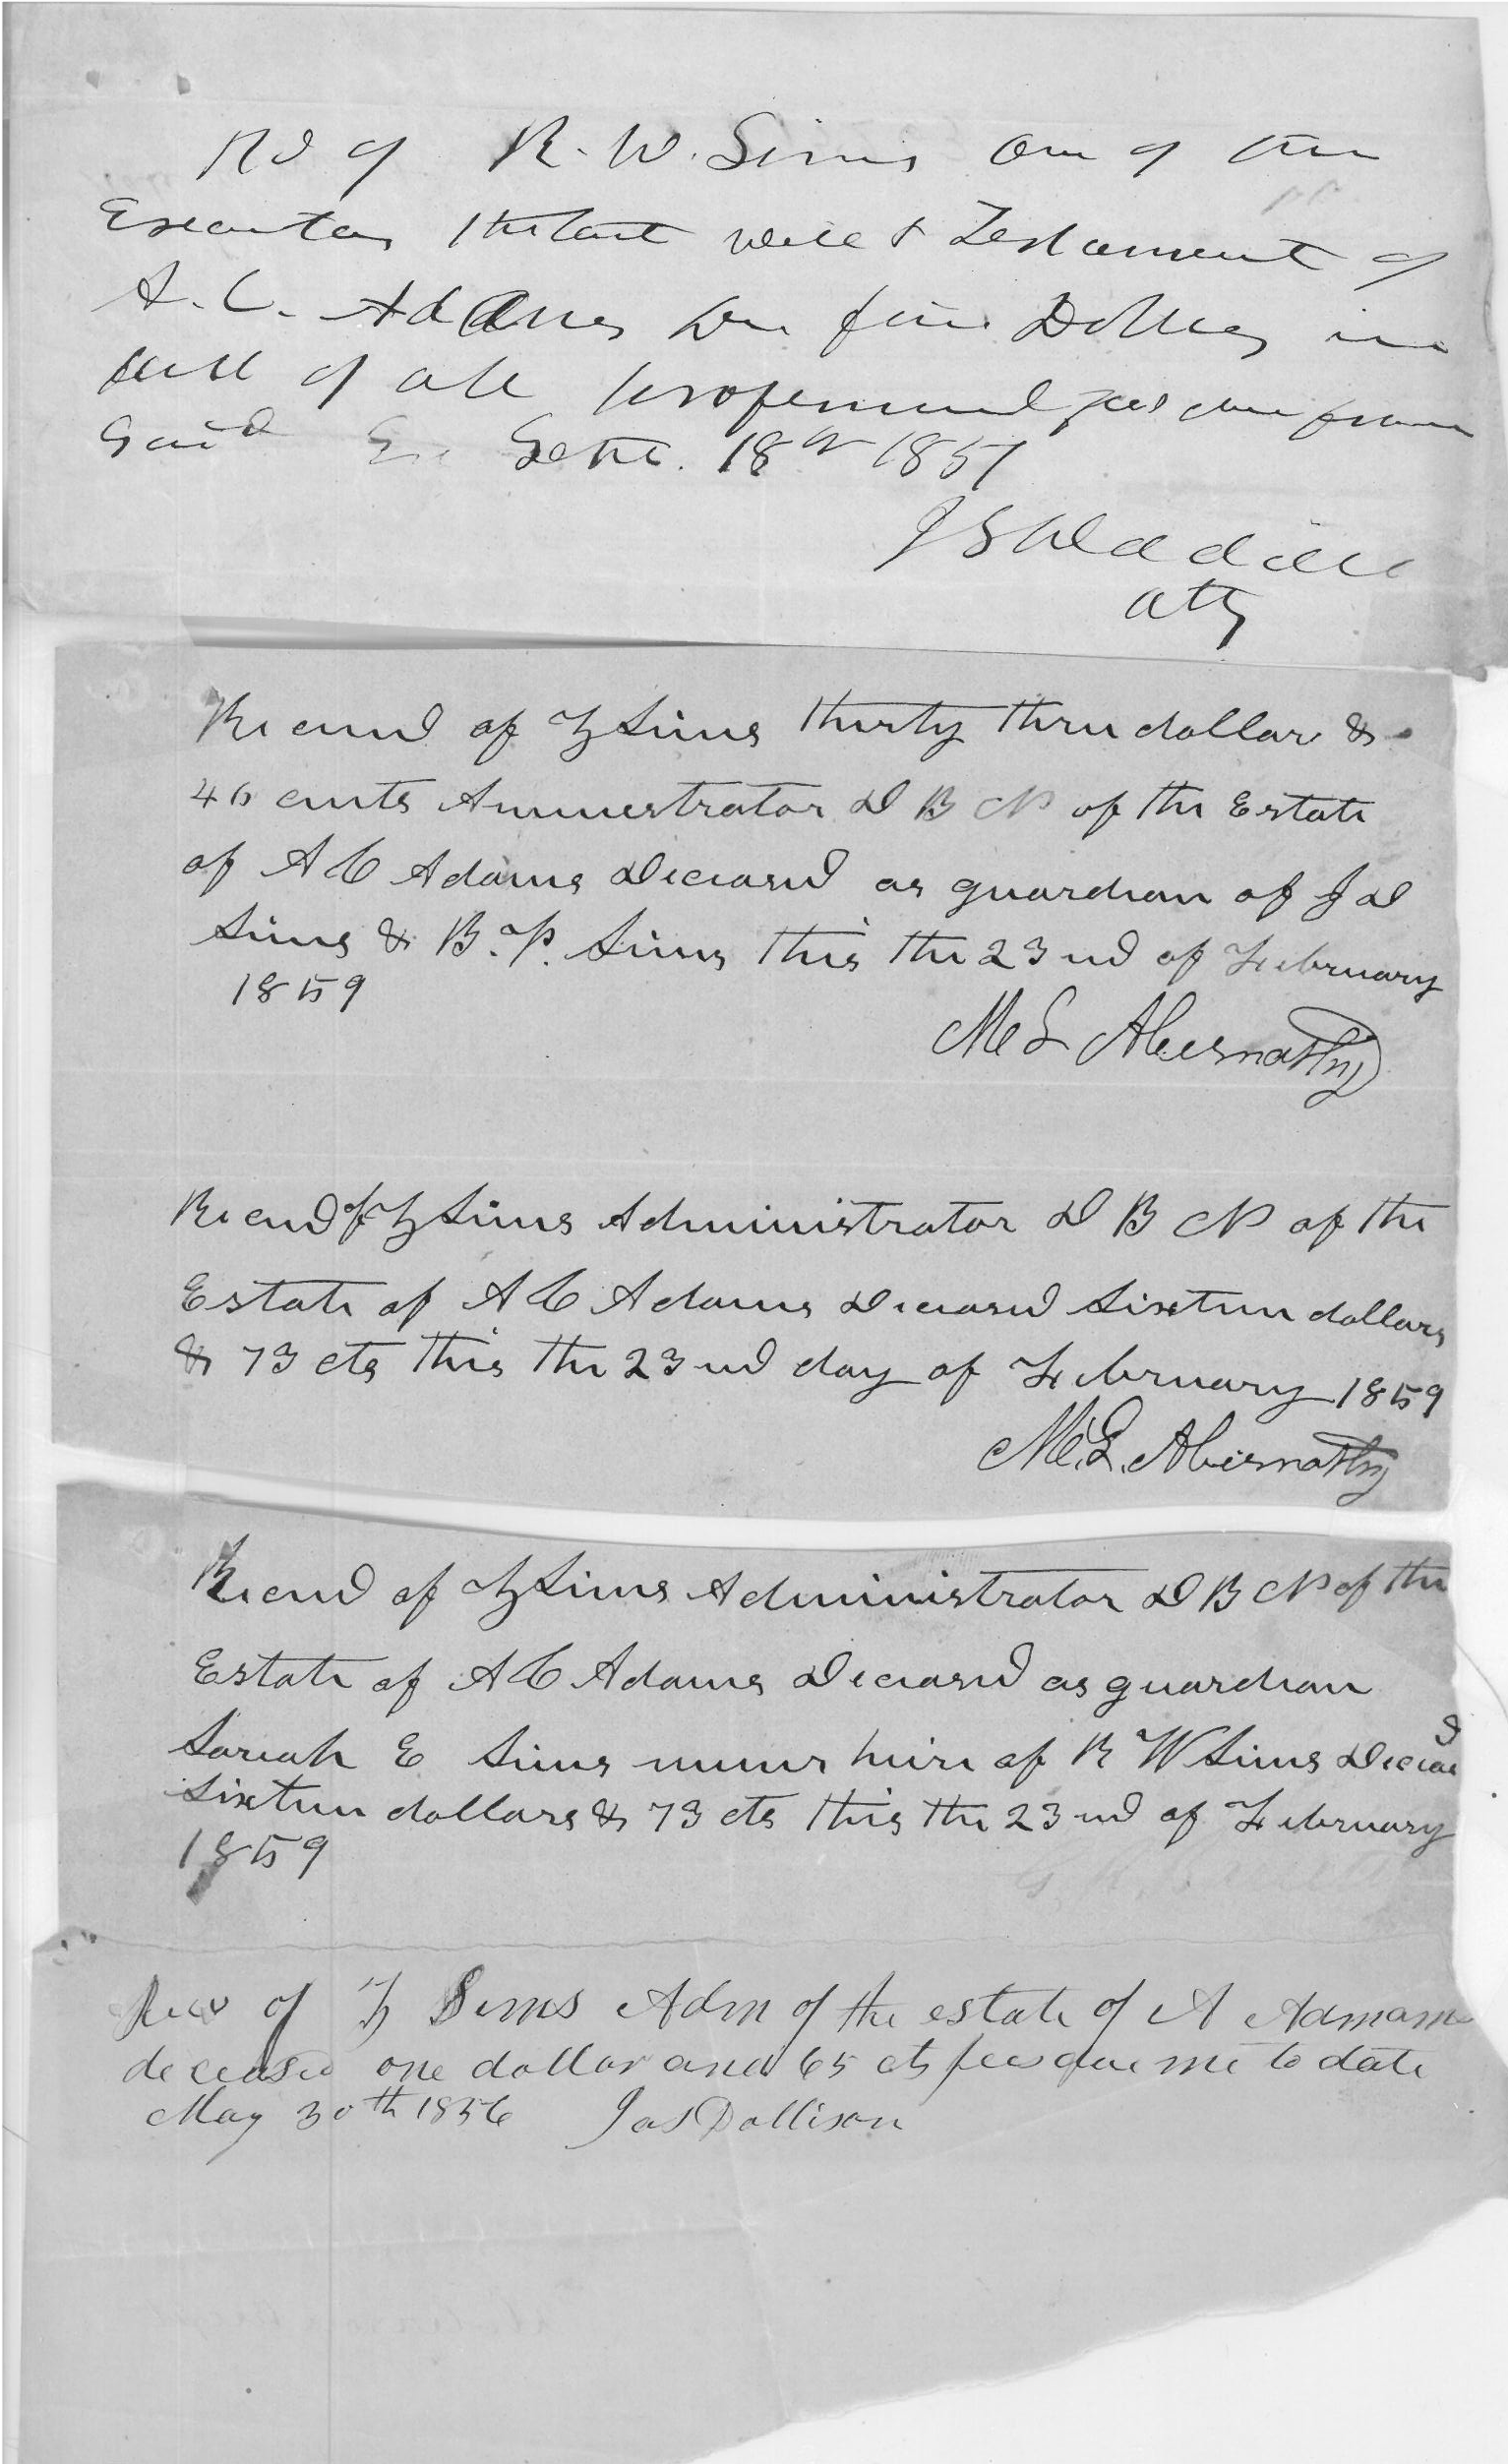 Rd of R. W. Sims one of the
Executors the last will & Testament of
A. C. Adams five Dollars in
full of all professional fees due from
Said Sept. 18th 1851
Atty
Received of Z Sims thirty three dollars &
46 cents Amnestrator D B N of the Estate
of A C Adams Deceased as guardian of J D
Sims & B. P. Sims this the 23nd of February
1859
M L Abernathy
Received of Z Sims Administrator D B N of the
Estate of A C Adams Deceased Sixteen dollars
& 73 cts this the 23nd day of February 1859
M. L. Abernathy
Received of Z Sims Administrator D B N of the
Estate of A C Adams Deceased as guardian
Sariah E Sims minor heire of R W Sims Decead
Sixteen dollars & 73 cts this the 23nd of February
1859
Recv of Z Sims Adm of the estate of A Admams
deceased one dollar and 65 cts fees due me to date
May 30th 1856 Jas Dollison